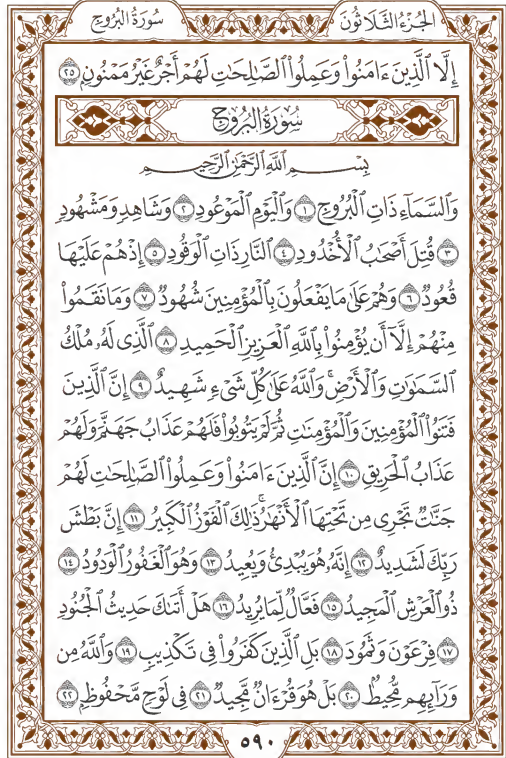 سُورَةُ البُرُوجِ
الجُزْءُ الثَّلَاثُونَ
إِلَّا ٱلَّذِينَ ءَامَنُوا۟ وَعَمِلُوا۟ ٱلصَّـٰلِحَـٰتِ لَهُمْ أَجْرٌ غَيْرُ مَمْنُونٍۭ ٢٥
سُورَةُ البُرُوجِ
بِسْمِ ٱللَّهِ ٱلرَّحْمَـٰنِ ٱلرَّحِيمِ
وَٱلسَّمَآءِ ذَاتِ ٱلْبُرُوجِ ١ وَٱلْيَوْمِ ٱلْمَوْعُودِ ٢ وَشَاهِدٍ وَمَشْهُودٍ
٣ قُتِلَ أَصْحَـٰبُ ٱلْأُخْدُودِ ٤ ٱلنَّارِ ذَاتِ ٱلْوَقُودِ ٥ إِذْ هُمْ عَلَيْهَا
قُعُودٌ ٦ وَهُمْ عَلَىٰ مَا يَفْعَلُونَ بِٱلْمُؤْمِنِينَ شُهُودٌ ٧ وَمَا نَقَمُوا۟
مِنْهُمْ إِلَّآ أَن يُؤْمِنُوا۟ بِٱللَّهِ ٱلْعَزِيزِ ٱلْحَمِيدِ ٨ ٱلَّذِى لَهُۥ مُلْكُ
ٱلسَّمَـٰوَٰتِ وَٱلْأَرْضِ ۚ وَٱللَّهُ عَلَىٰ كُلِّ شَىْءٍ شَهِيدٌ ٩ إِنَّ ٱلَّذِينَ
فَتَنُوا۟ ٱلْمُؤْمِنِينَ وَٱلْمُؤْمِنَـٰتِ ثُمَّ لَمْ يَتُوبُوا۟ فَلَهُمْ عَذَابُ جَهَنَّمَ وَلَهُمْ
عَذَابُ ٱلْحَرِيقِ ١٠ إِنَّ ٱلَّذِينَ ءَامَنُوا۟ وَعَمِلُوا۟ ٱلصَّـٰلِحَـٰتِ لَهُمْ
جَنَّـٰتٌ تَجْرِى مِن تَحْتِهَا ٱلْأَنْهَـٰرُ ۚ ذَٰلِكَ ٱلْفَوْزُ ٱلْكَبِيرُ ١١ إِنَّ بَطْشَ
رَبِّكَ لَشَدِيدٌ ١٢ إِنَّهُۥ هُوَ يُبْدِئُ وَيُعِيدُ ١٣ وَهُوَ ٱلْغَفُورُ ٱلْوَدُودُ ١٤
ذُو ٱلْعَرْشِ ٱلْمَجِيدُ ١٥ فَعَّالٌ لِّمَا يُرِيدُ ١٦ هَلْ أَتَىٰكَ حَدِيثُ ٱلْجُنُودِ
١٧ فِرْعَوْنَ وَثَمُودَ ١٨ بَلِ ٱلَّذِينَ كَفَرُوا۟ فِى تَكْذِيبٍ ١٩ وَٱللَّهُ مِن
وَرَآئِهِم مُّحِيطٌۢ ٢٠ بَلْ هُوَ قُرْءَانٌ مَّجِيدٌ ٢١ فِى لَوْحٍ مَّحْفُوظٍۭ ٢٢
٥٩٠